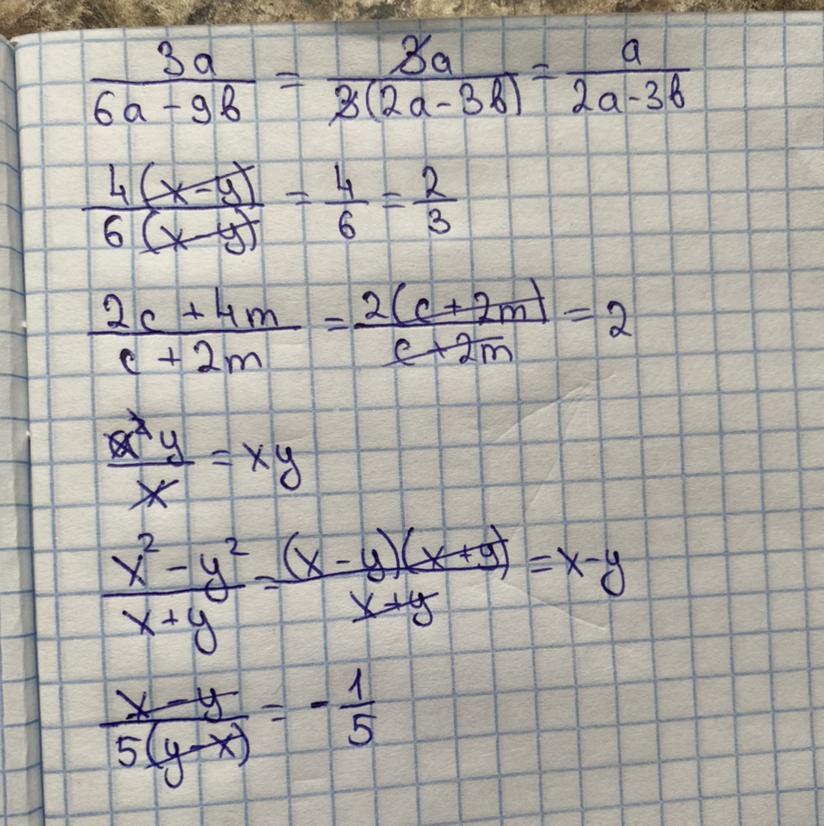 3a/(6a-9b) = 3a/(3(2a-3b)) = a/(2a-3b)
4(x-y)/(6(x-y)) = 4/6 = 2/3
(2c+4m)/(c+2m) = 2(c+2m)/(c+2m) = 2
x²y/x = xy
(x²-y²)/(x+y) = (x-y)(x+y)/(x+y) = x-y
(x-y)/(5(y-x)) = -1/5